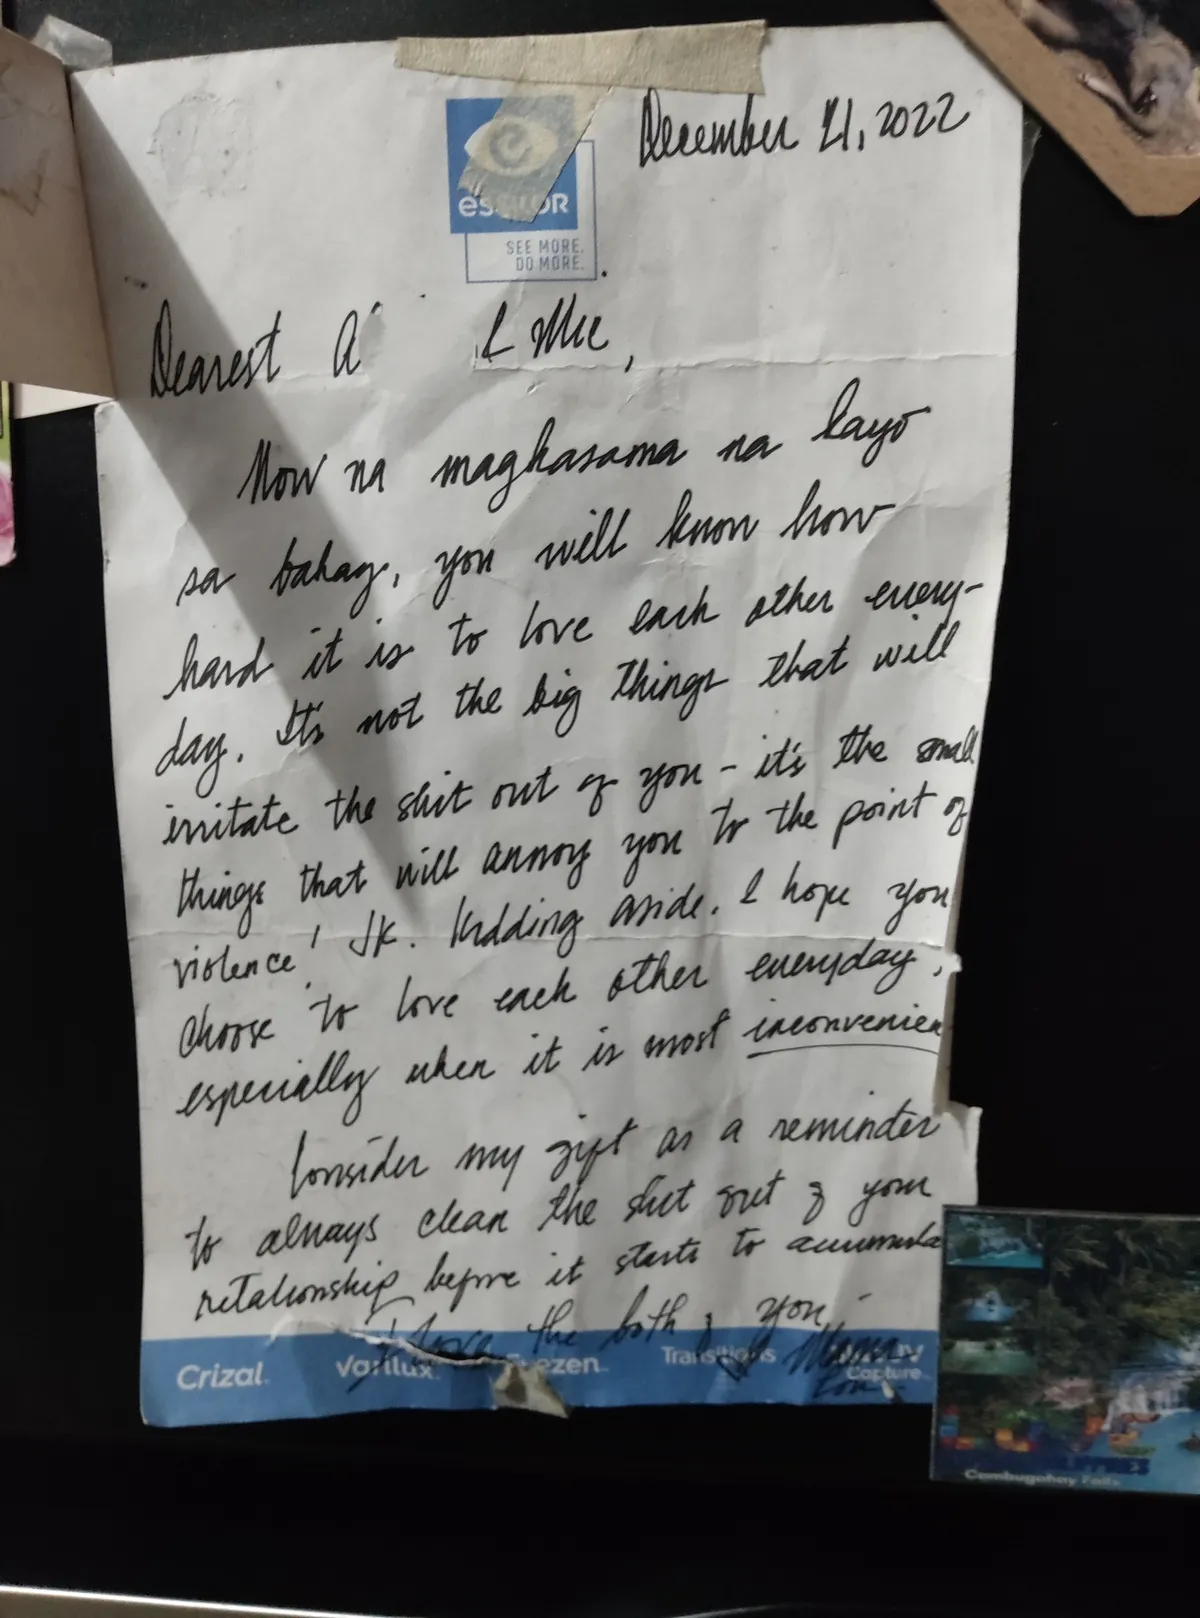 December 21, 2022
essilor
SEE MORE.
DO MORE.
Dearest A & Mie,
Now na magkasama na kayo
sa bahay, you will know how
hard it is to love each other every-
day. It's not the big things that will
irritate the shit out of you - it's the small
things that will annoy you to the point of
violence! JK. Kidding aside. I hope you
choose to love each other everyday,
especially when it is most inconvenien
Consider my gift as a reminder
to always clean the shit out of your
relationship before it starts to accumula
I love the both of you -
Mama
Crizal Varilux Transitions
Capture
Cambugahay Falls